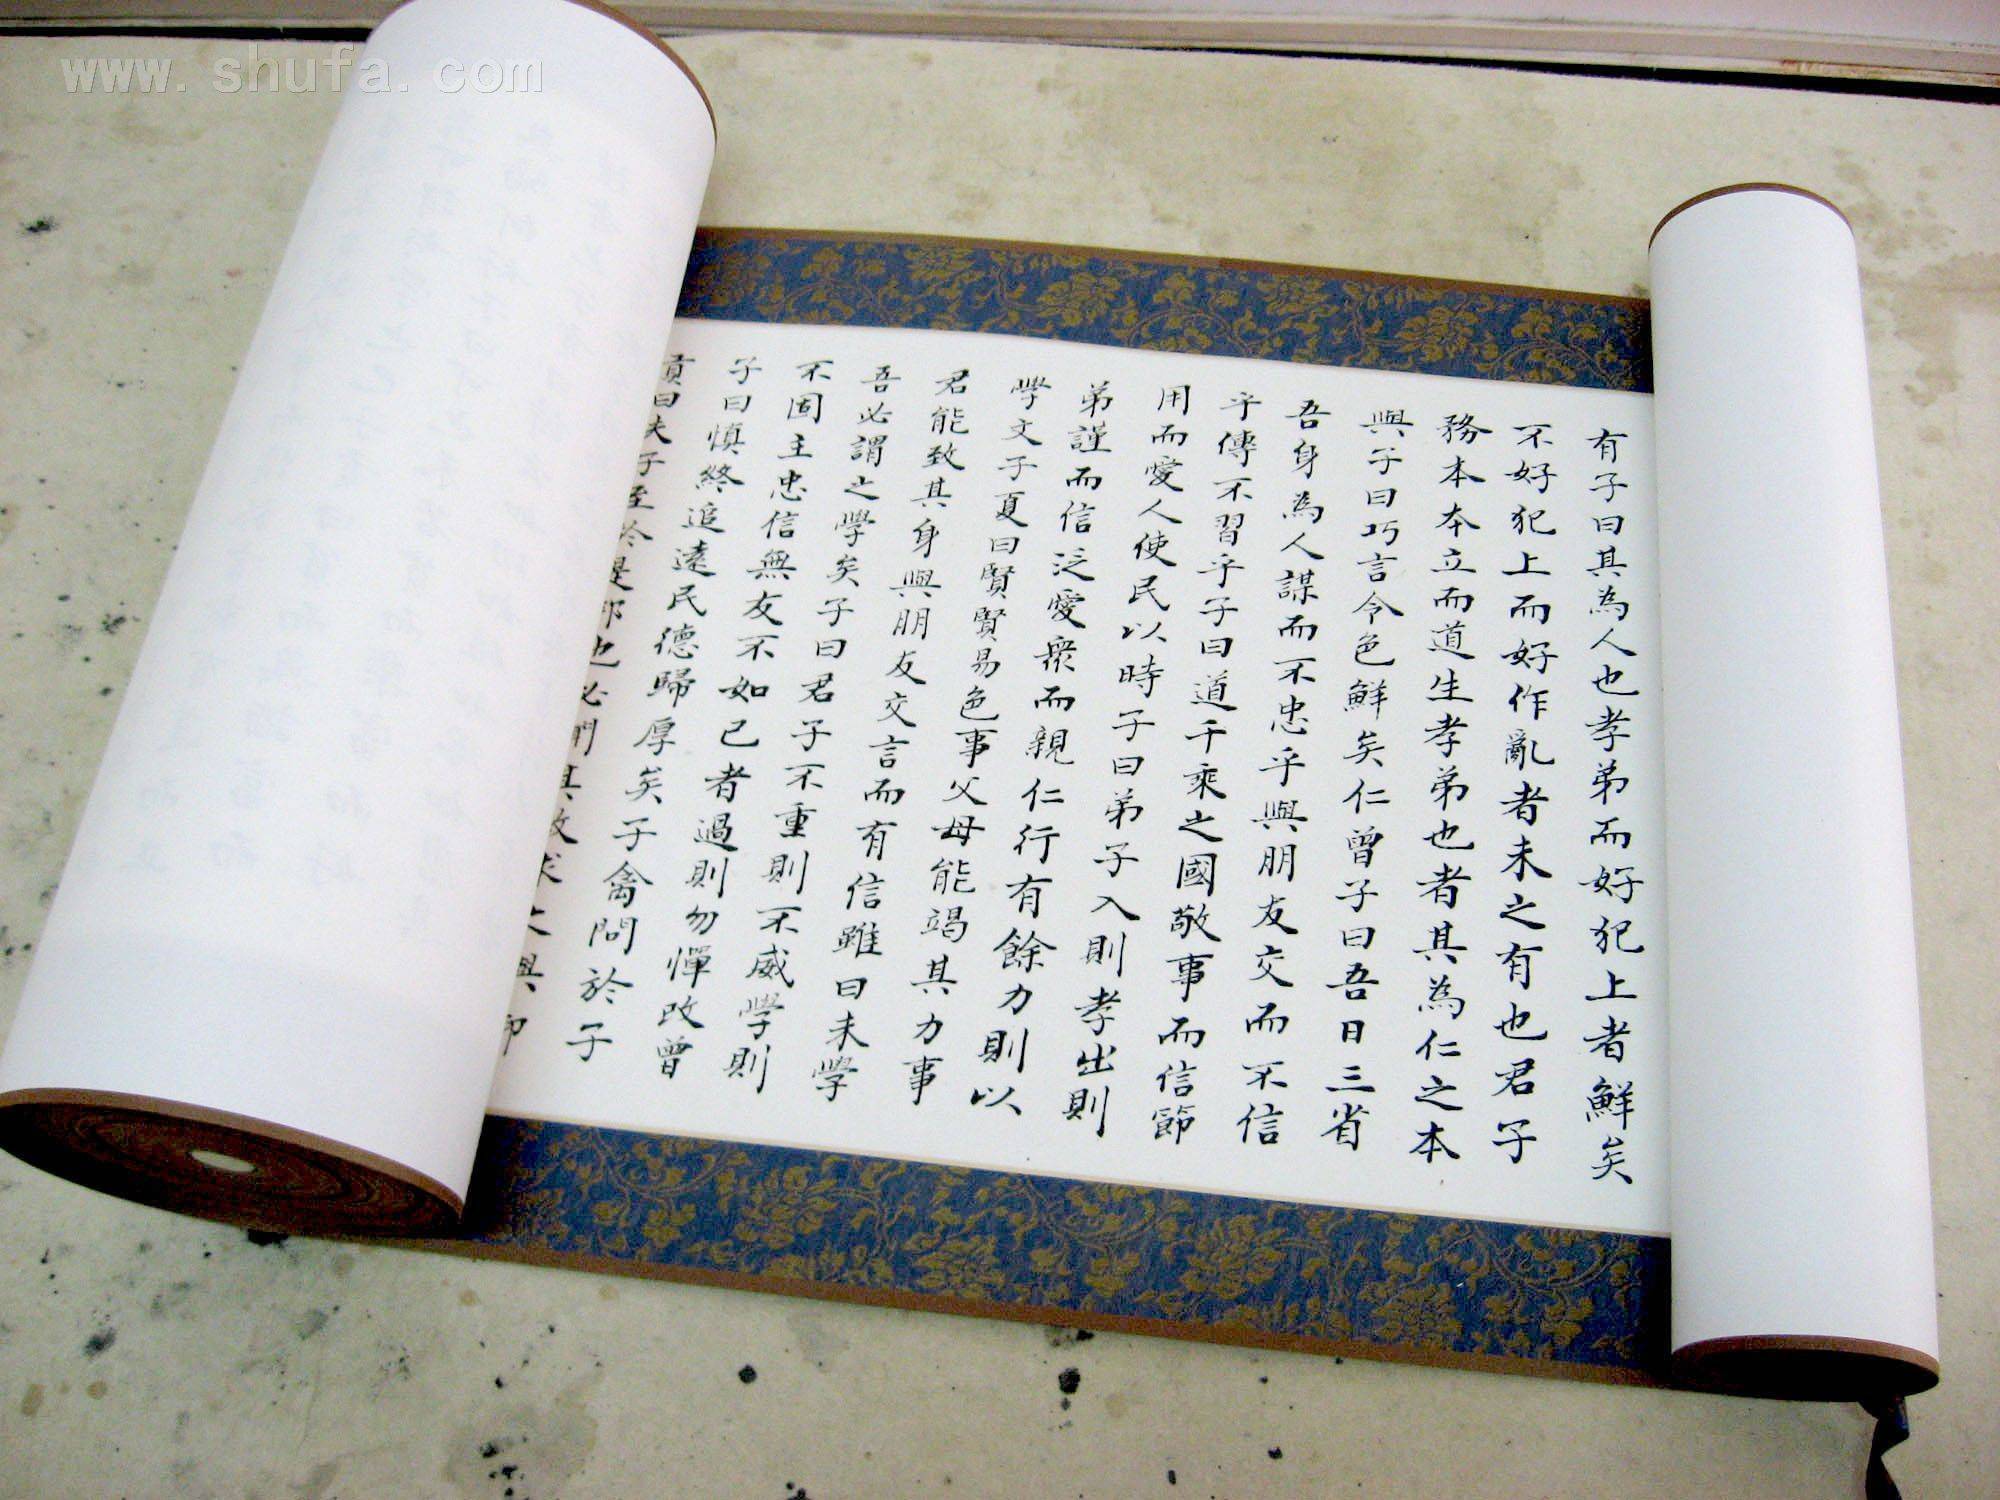 www.shufa.com
有子曰其為人也孝弟而好犯上者鮮矣
不好犯上而好作亂者未之有也君子
務本本立而道生孝弟也者其為仁之本
與子曰巧言令色鮮矣仁曾子曰吾日三省
吾身為人謀而不忠乎與朋友交而不信
乎傳不習乎子曰道千乘之國敬事而信節
用而愛人使民以時子曰弟子入則孝出則
弟謹而信泛愛衆而親仁行有餘力則以
學文子夏曰賢賢易色事父母能竭其力事
君能致其身與朋友交言而有信雖曰未學
吾必謂之學矣子曰君子不重則不威學則
不固主忠信無友不如己者過則勿憚改曾
子曰慎終追遠民德歸厚矣子禽問於子
貢曰夫子至於是邦也必
其 求 與